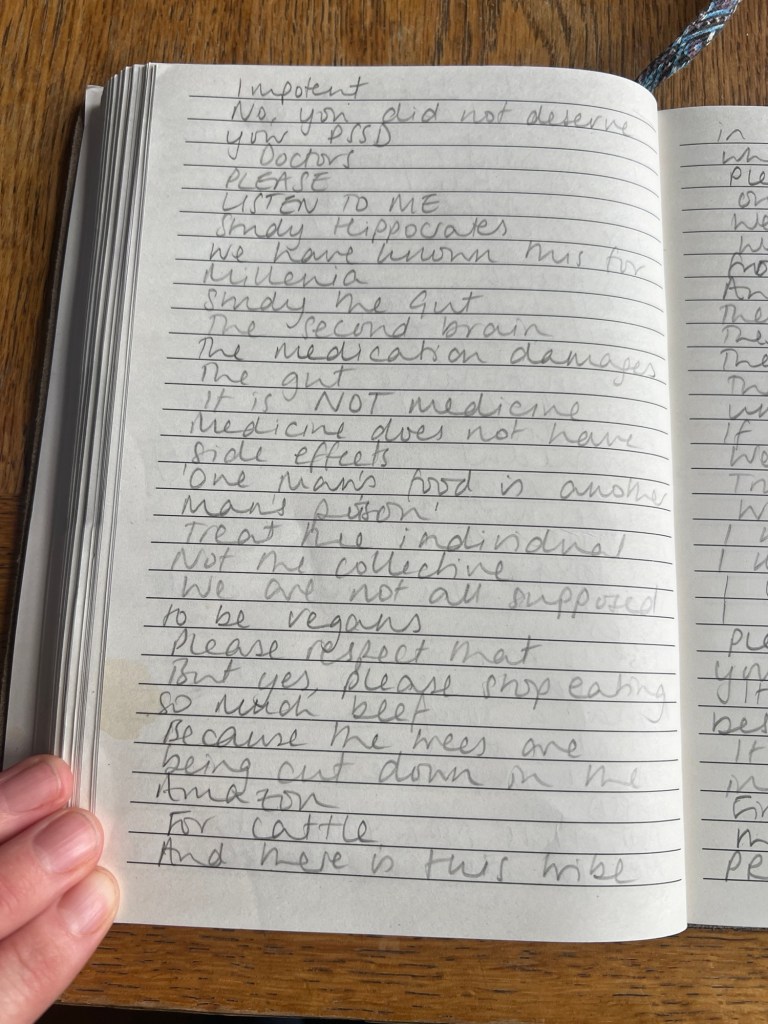 Impotent
No, you did not deserve
your PSSD
Doctors
PLEASE
LISTEN TO ME
Study Hippocrates
We have known this for
Millenia
Study the Gut
The second brain
The medication damages
The gut
It is NOT medicine
Medicine does not have
side effects
'One man's food is another
man's poison'
Treat the individual
Not the collective
We are not all supposed
to be vegans
Please respect that
But yes, please stop eating
so much beef
Because the trees are
being cut down in the
Amazon
For cattle
And there is this tribe
in
Ple
we
An
The
The
The
Th
If
we
Th
w
I
I
I
Ple
bes
It
in
m
PRE